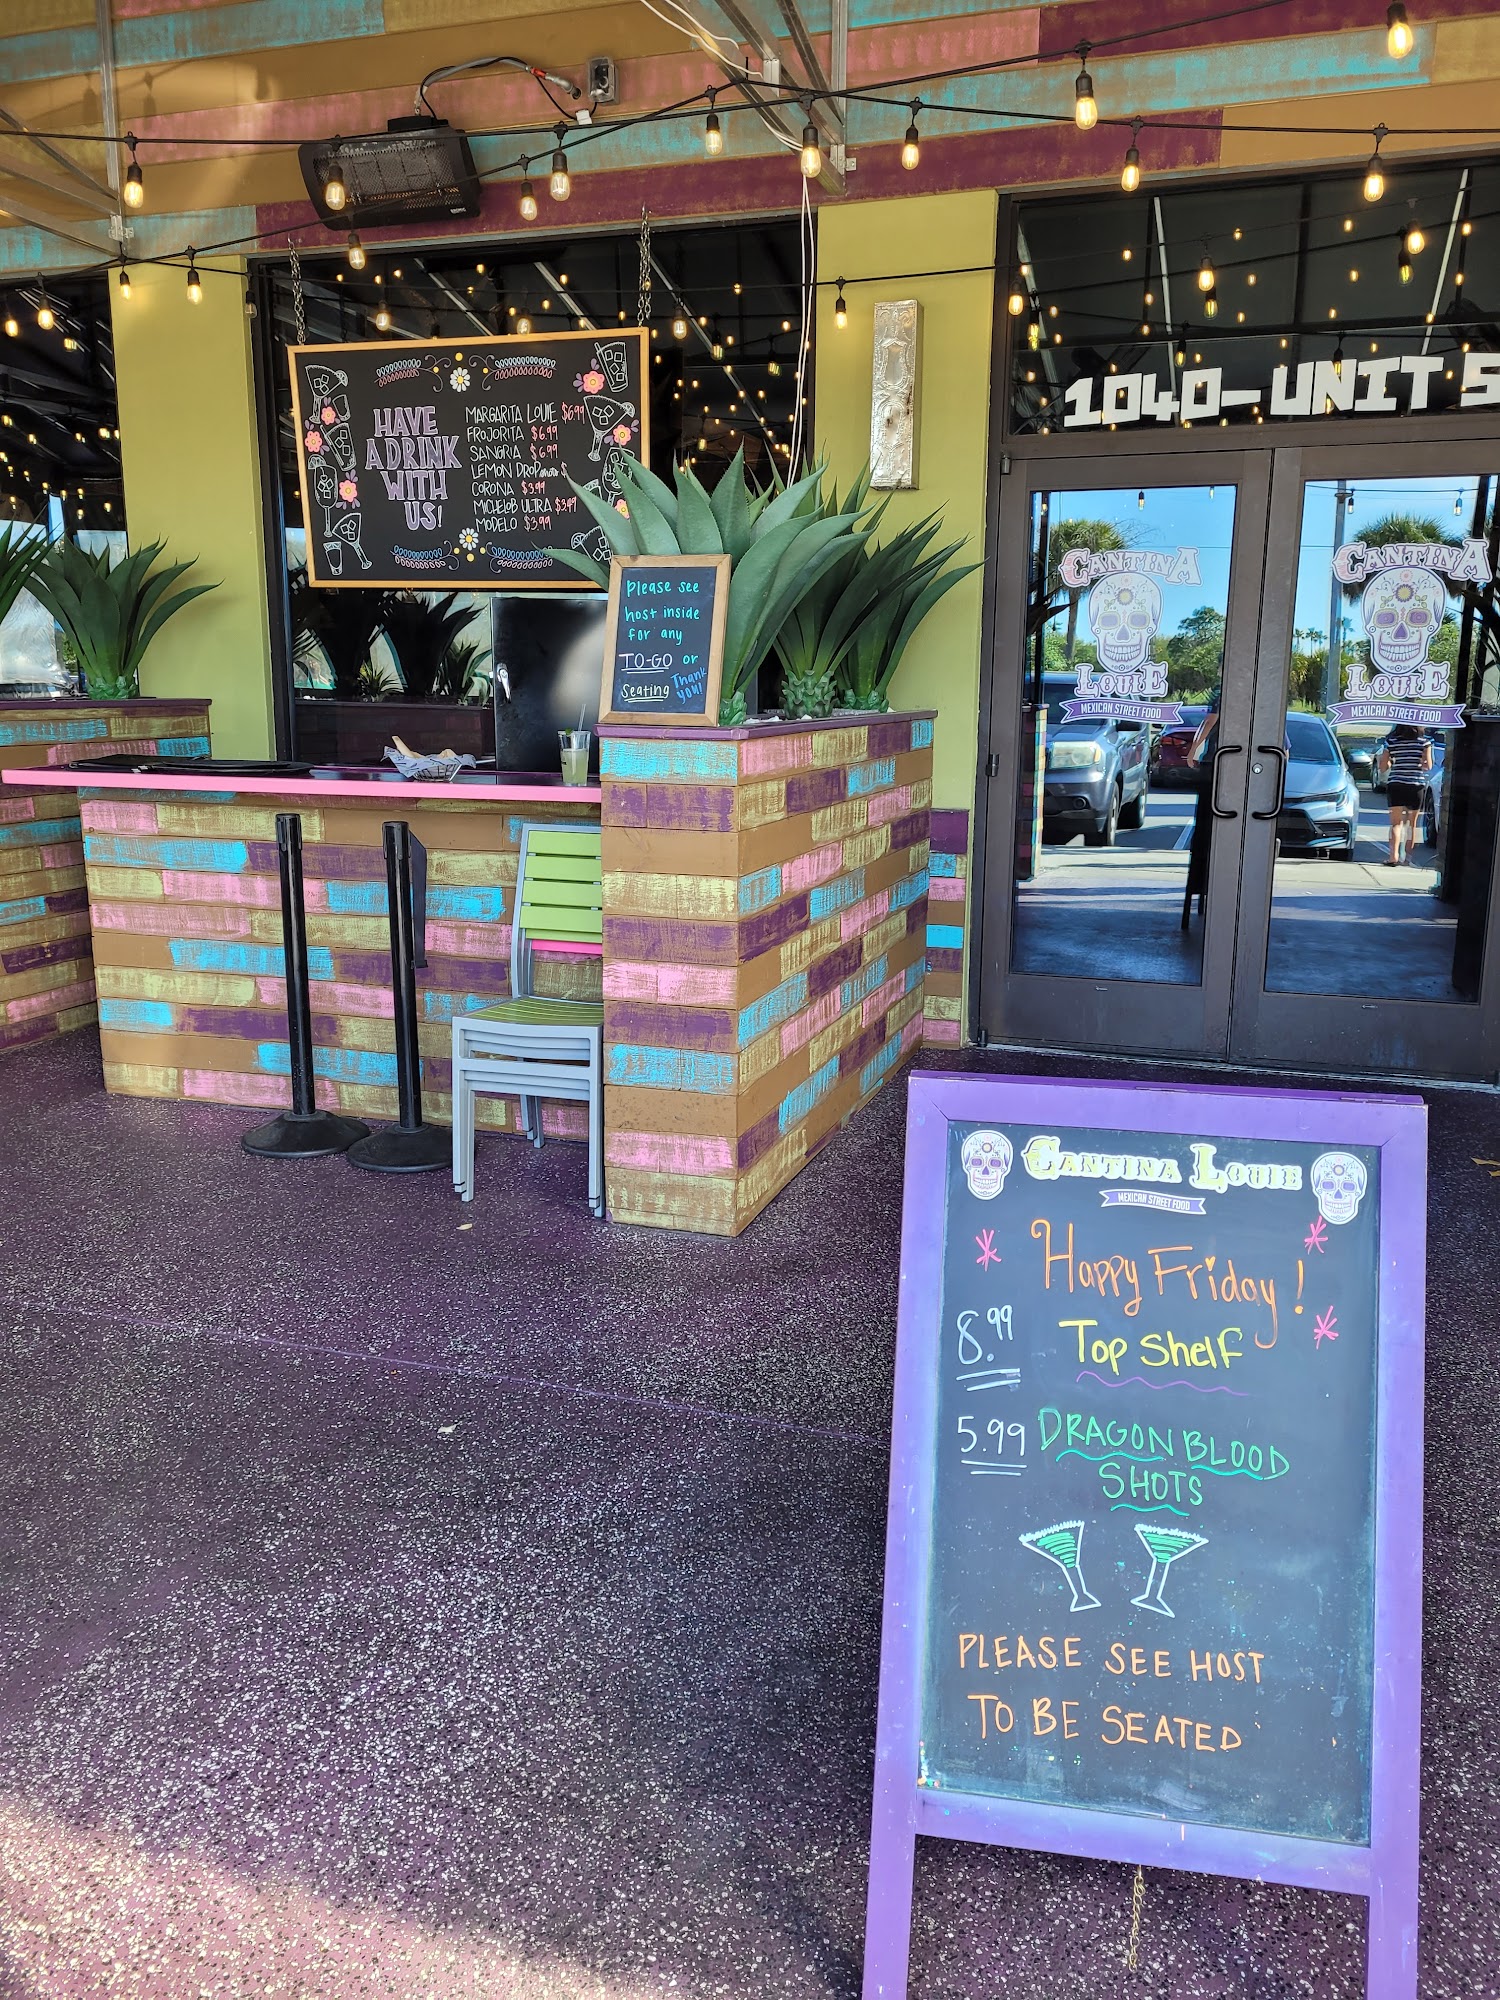 HAVE
A DRINK
WITH
US!
MARGARITA LOUIE $6.99
FROJORITA $6.99
SANGRIA $6.99
LEMON DROP $
CORONA $3.99
MICHELOB ULTRA $3.49
MODELO $3.99
Please see
host inside
for any
TO-GO or
Seating Thank
you!
1040-UNIT 5
CANTINA
LOUIE
MEXICAN STREET FOOD
CANTINA
LOUIE
MEXICAN STREET FOOD
CANTINA LOUIE
MEXICAN STREET FOOD
Happy Friday!
8.99 Top Shelf
5.99 DRAGON BLOOD
SHOTS
PLEASE SEE HOST
TO BE SEATED